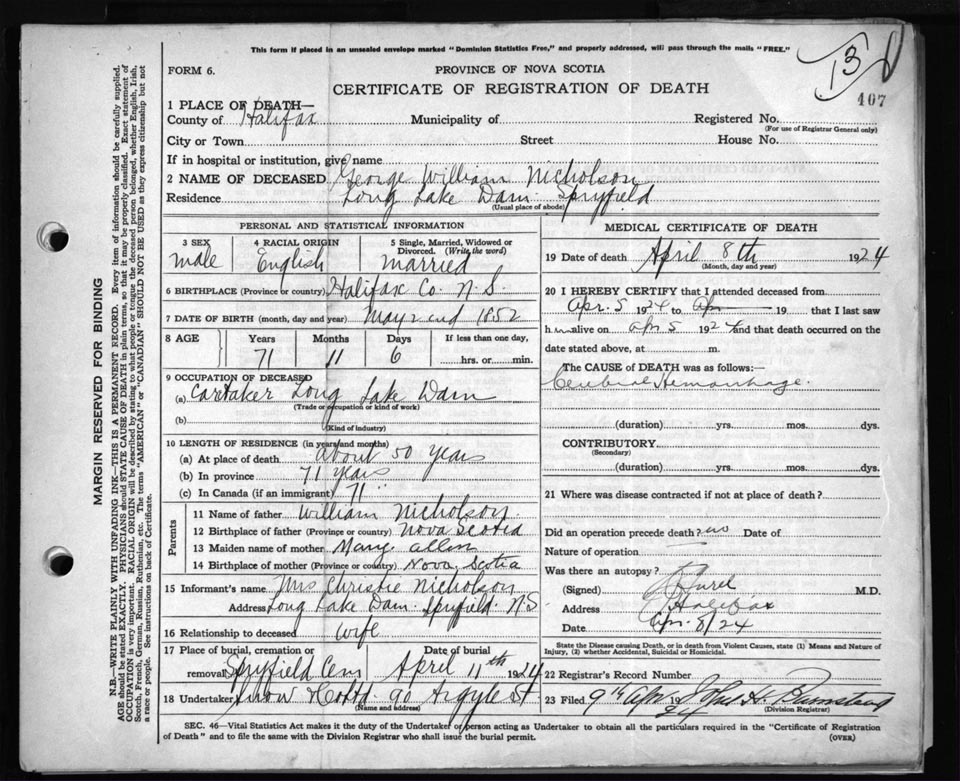 This form if placed in an unsealed envelope marked "Dominion Statistics Free," and properly addressed, will pass through the mails "FREE."
13
407
FORM 6.
PROVINCE OF NOVA SCOTIA
CERTIFICATE OF REGISTRATION OF DEATH
1 PLACE OF DEATH—
County of Halifax Municipality of Registered No.
(For use of Registrar General only)
City or Town Street House No.
If in hospital or institution, give name
2 NAME OF DECEASED George William Nicholson
Residence Long Lake Dam Spryfield
(Usual place of abode)
PERSONAL AND STATISTICAL INFORMATION
3 SEX 4 RACIAL ORIGIN 5 Single, Married, Widowed or Divorced. (Write the word)
male English married
6 BIRTHPLACE (Province or country) Halifax Co. N.S.
7 DATE OF BIRTH (month, day and year) May 2nd 1852
8 AGE Years Months Days If less than one day,
71 11 6 hrs. or min.
9 OCCUPATION OF DECEASED
(a) Caretaker Long Lake Dam
(Trade or occupation or kind of work)
(b)
(Kind of industry)
10 LENGTH OF RESIDENCE (in years and months)
(a) At place of death about 50 years
(b) In province 71 years
(c) In Canada (if an immigrant) 71 "
Parents
11 Name of father William Nicholson
12 Birthplace of father (Province or country) Nova Scotia
13 Maiden name of mother Mary Allen
14 Birthplace of mother (Province or country) Nova Scotia
15 Informant's name Mrs Christie Nicholson
Address Long Lake Dam Spryfield N S
16 Relationship to deceased wife
17 Place of burial, cremation or removal Date of burial
Spryfield Cem April 11th 1924
18 Undertaker Snow 90 Argyle St
(Name and address)
MEDICAL CERTIFICATE OF DEATH
19 Date of death April 8th 1924
(Month, day and year)
20 I HEREBY CERTIFY that I attended deceased from
Apr. 5 1924 to Apr 19 that I last saw
h im alive on Apr 5 1924 and that death occurred on the
date stated above, at m.
The CAUSE OF DEATH was as follows:—
Cerebral Hemorrhage.
(duration) yrs. mos. dys.
CONTRIBUTORY
(Secondary)
(duration) yrs. mos. dys.
21 Where was disease contracted if not at place of death?
Did an operation precede death? no Date of
Nature of operation
Was there an autopsy?
(Signed) M.D.
Address Halifax
Date Apr. 8/24
State the Disease causing Death, or in death from Violent Causes, state (1) Means and Nature of Injury, (2) whether Accidental, Suicidal or Homicidal.
22 Registrar's Record Number
23 Filed 9th Apr 1924 John H.
(Division Registrar)
SEC. 46—Vital Statistics Act makes it the duty of the Undertaker or person acting as Undertaker to obtain all the particulars required in the "Certificate of Registration
of Death" and to file the same with the Division Registrar who shall issue the burial permit. (OVER)
MARGIN RESERVED FOR BINDING
N.B.—WRITE PLAINLY WITH UNFADING INK—THIS IS A PERMANENT RECORD. Every item of information should be carefully supplied.
AGE should be stated EXACTLY. PHYSICIANS should STATE CAUSE OF DEATH in plain terms, so that it may be properly classified. Exact statement of
OCCUPATION is very important. RACIAL ORIGIN will be described by stating to what people or tongue the deceased person belonged, whether English, Irish,
Scotch, French, German, Russian, Ruthenian, etc. The terms "AMERICAN" or "CANADIAN" SHOULD NOT BE USED as they express citizenship but not
a race or people. See instructions on back of Certificate.